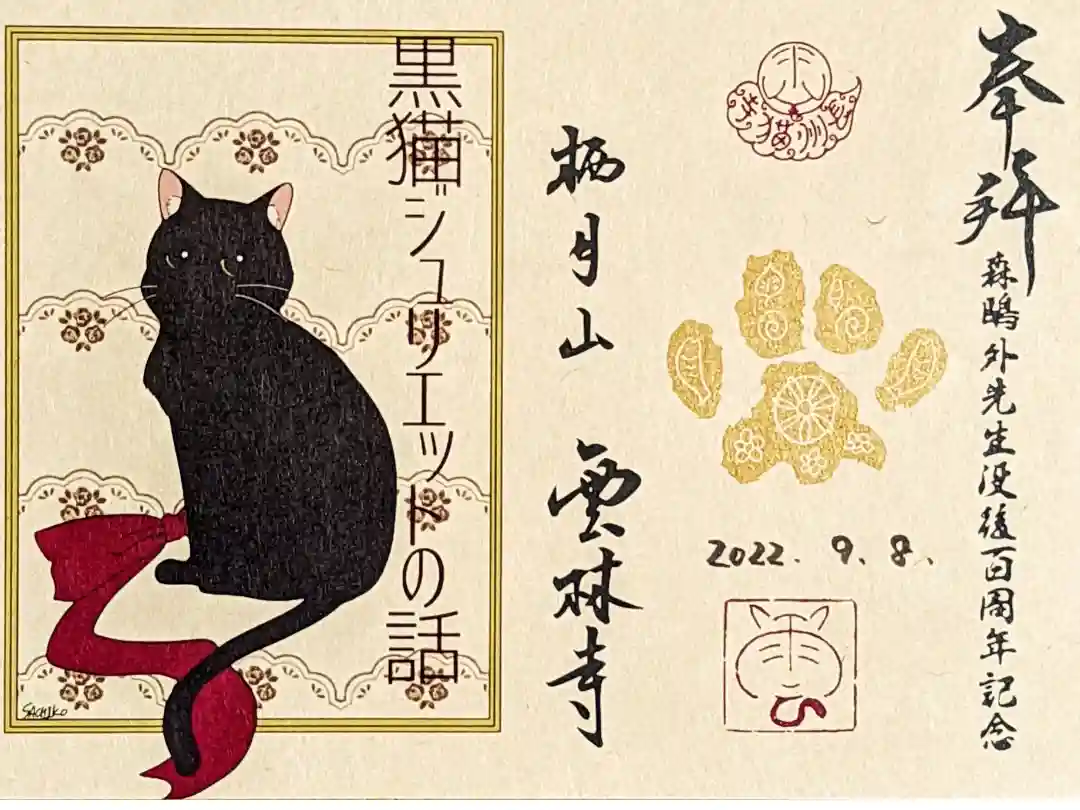 奉拝
森鴎外先生没後百周年記念
2022. 9. 8.
栖月山 雲林寺
黒猫ジュリエットの話
SACHIKO